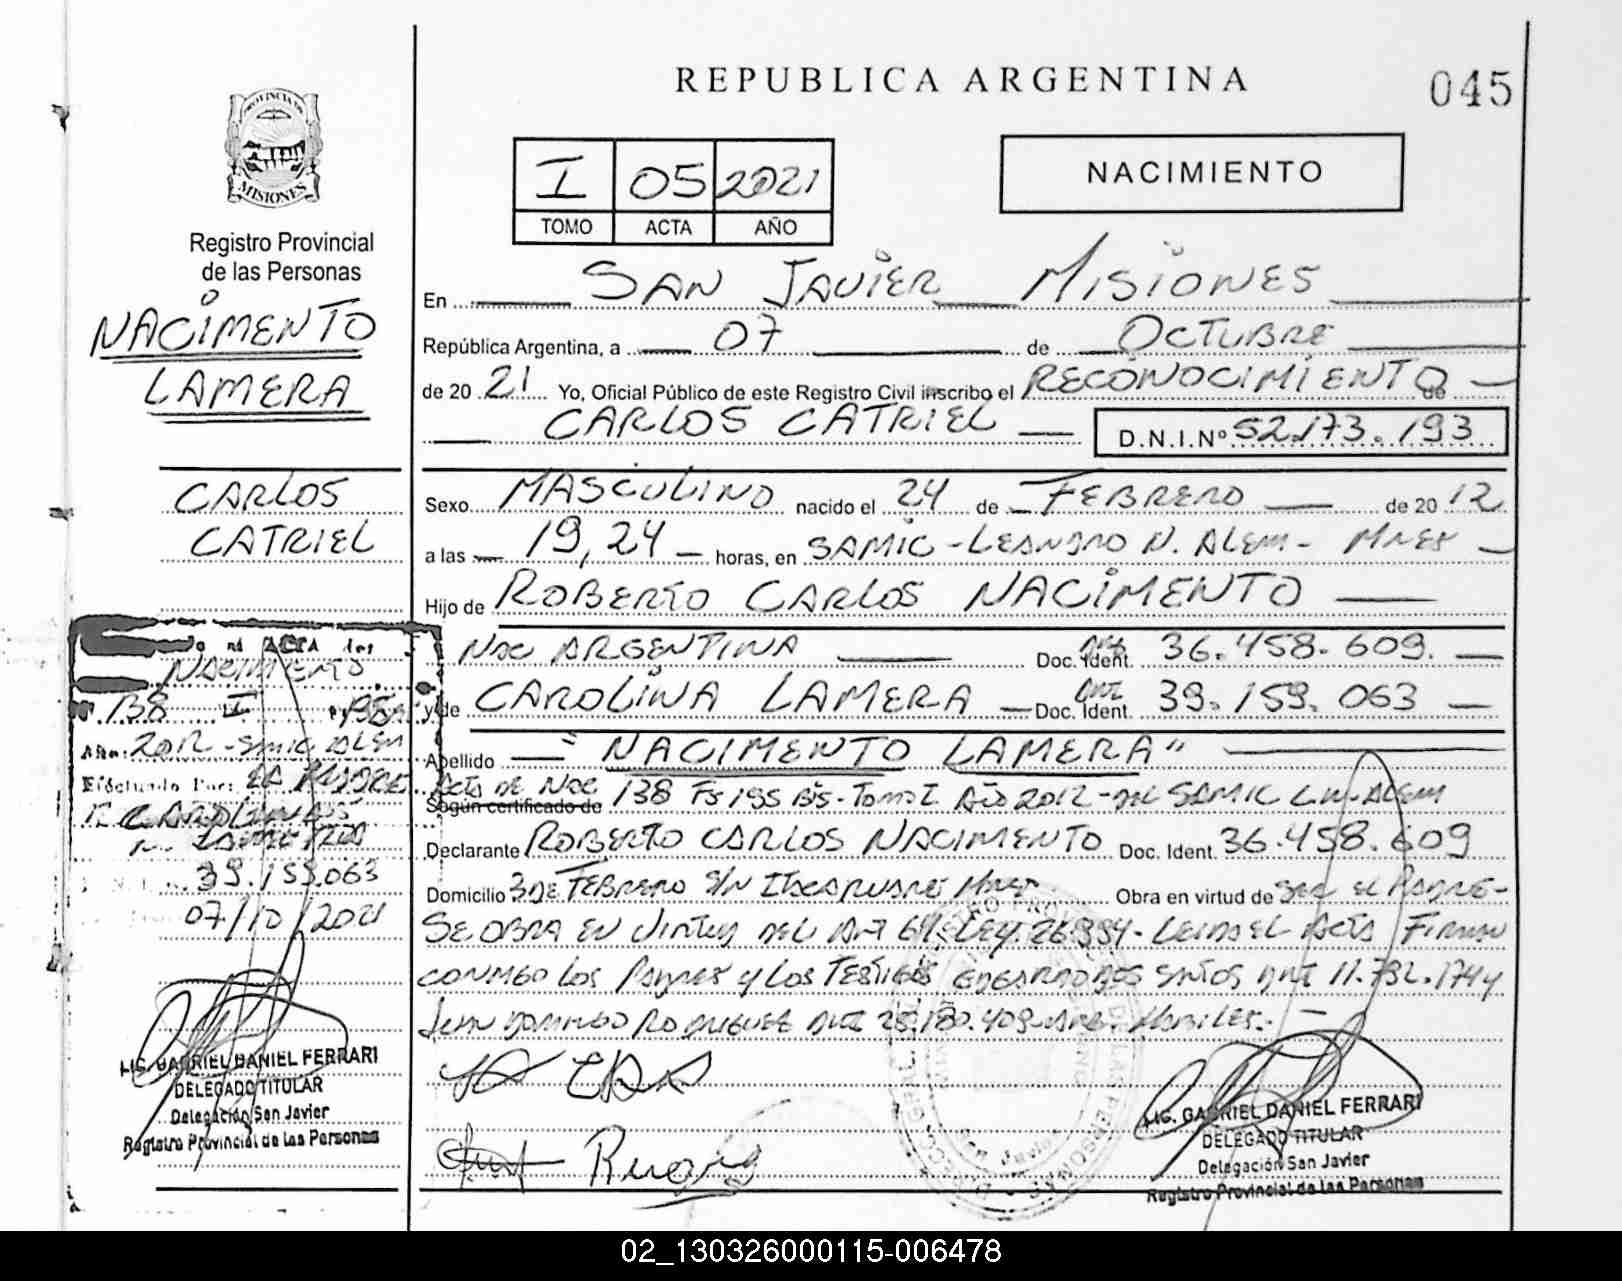 REPUBLICA ARGENTINA
045
PROVINCIA DE
MISIONES
Registro Provincial
de las Personas
NACIMENTO
LAMERA
CARLOS
CATRIEL
I 05 2021
TOMO ACTA AÑO
NACIMIENTO
En SAN JAVIER MISIONES
República Argentina, a 07 de OCTUBRE
de 20 21 Yo, Oficial Público de este Registro Civil inscribo el RECONOCIMIENTO de
CARLOS CATRIEL D.N.I.Nº 52.173.193
Sexo MASCULINO nacido el 24 de FEBRERO de 20 12
a las 19,24 horas, en SAMIC - LEANDRO N. ALEM - Mnes
Hijo de ROBERTO CARLOS NACIMENTO
Nac ARGENTINA Doc. Ident. DNI 36.458.609.
y de CAROLINA LAMERA Doc. Ident. DNI 39.159.063
Apellido "NACIMENTO LAMERA"
Acta de Nac
Según certificado de 138 Fs 195 Bis - Tomo I Año 2012 - del SAMIC L.N. ALEM
Declarante ROBERTO CARLOS NACIMENTO Doc. Ident. 36.458.609
Domicilio 3 de FEBRERO S/N ITACARUARE Mnes Obra en virtud de Ser el PADRE-
SE OBRA EN Virtud del Art LEY. - Leida el Acta Firman
conmigo los Padres y los TESTIGOS SANTOS DNI 11.792.174 y
Juan DOMINGO RODRIGUEZ DNI 25.180.409 Habiles.-
ACTA
NACIMIENTO
138 I
Año: 2012 - SAMIC ALEM
Efectuado Por: LA MADRE
CAROLINA
LAMERA
39.159.063
07/10/2021
LIC. GABRIEL DANIEL FERRARI
DELEGADO TITULAR
Delegación San Javier
Registro Provincial de las Personas
San Javier
LIC. GABRIEL DANIEL FERRARI
DELEGADO TITULAR
Delegación San Javier
Registro Provincial de las Personas
02_130326000115-006478